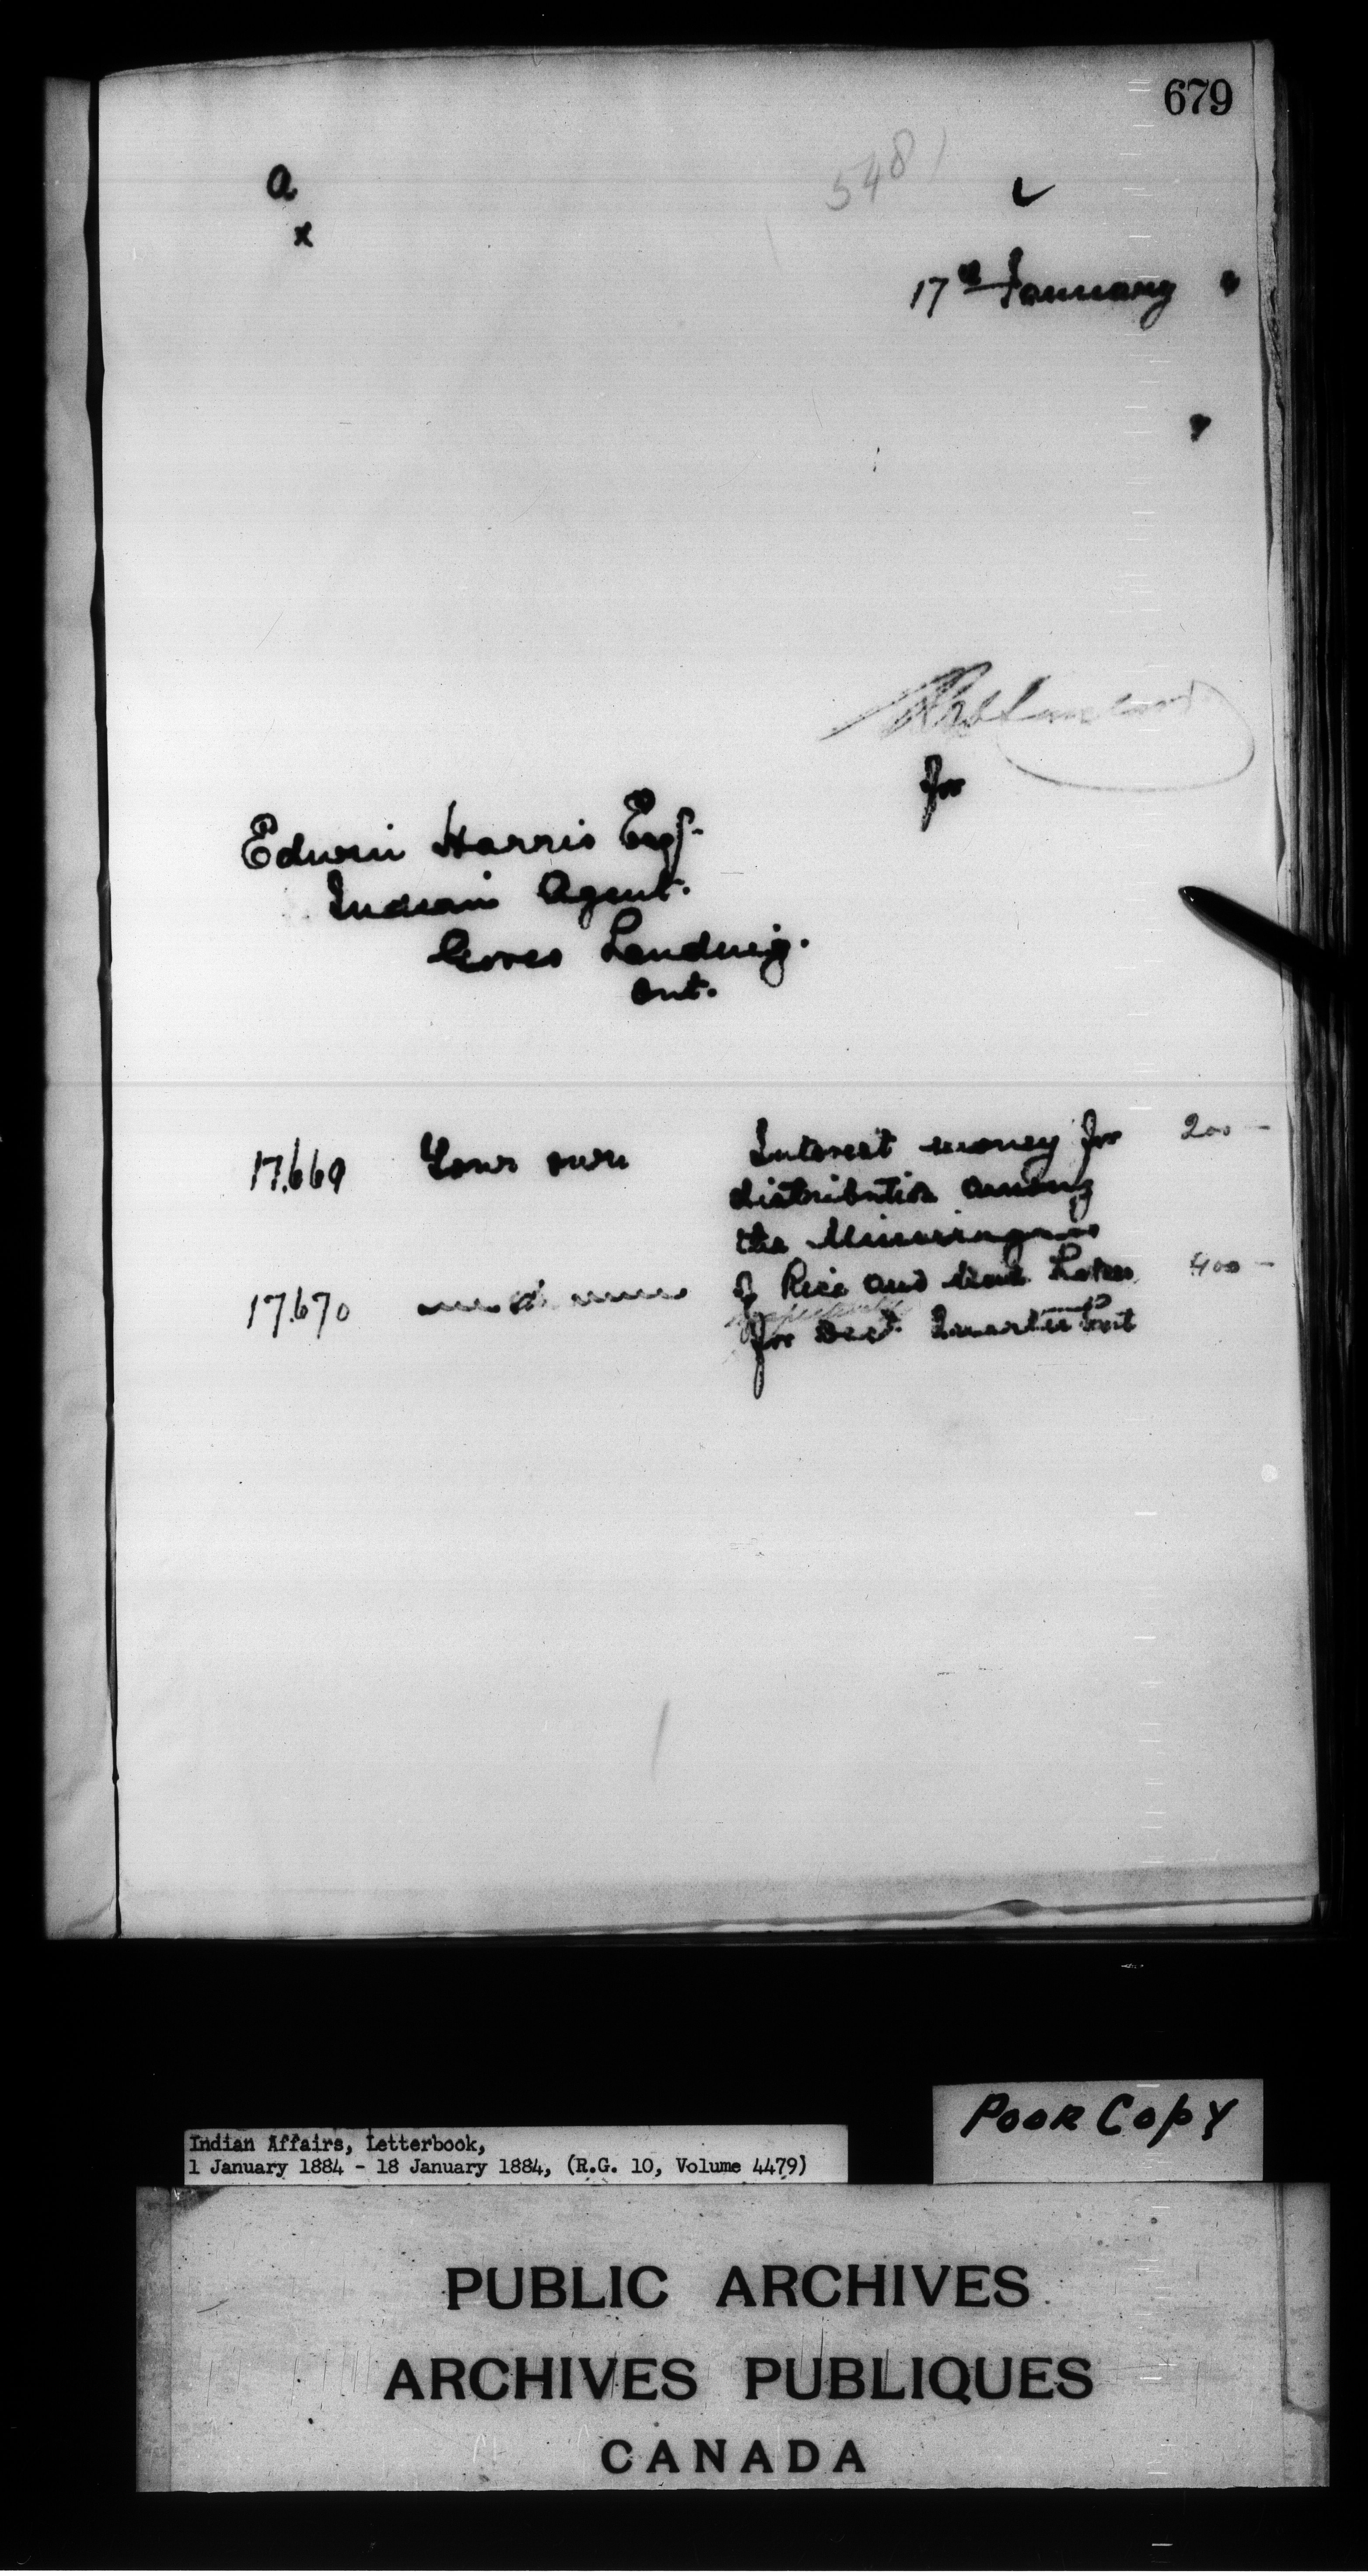 679
5481
a
x
17th January
for
Edwin Harris Esq.
Indian Agent.
Gores Landing.
Ont.
17.669 Your own Interest money for 200 –
distribution among
the Mississaguas
17.670 of Rice and Mud Lakes 400 –
respectively
for Decr. Quarter
Poor Copy
Indian Affairs, Letterbook,
1 January 1884 - 18 January 1884, (R.G. 10, Volume 4479)
PUBLIC ARCHIVES
ARCHIVES PUBLIQUES
CANADA